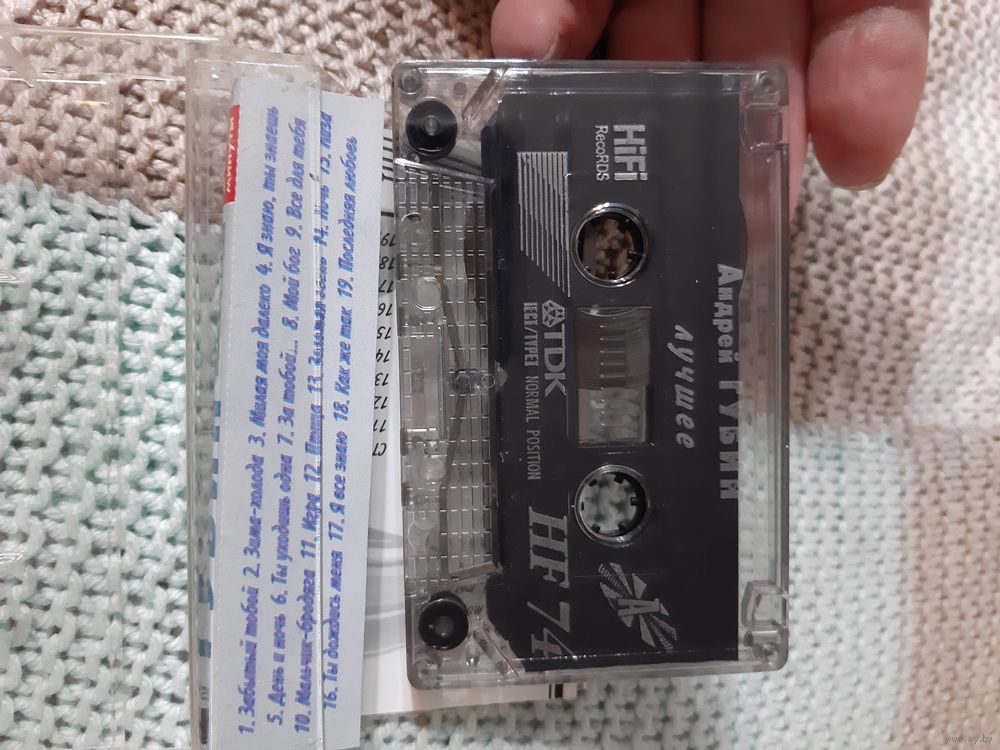 1. Забытый тобой 2. Зима-холода 3. Милая моя далеко 4. Я знаю, ты знаешь
5. День и ночь 6. Ты уходишь одна 7. За тобой... 8. Мой бог 9. Все для тебя
10. Мальчик-бродяга 11. Кара 12. Птица 13. 14. Ночь 15.
16. Ты дождись меня 17. Я все знаю 18. Как же так 19. Последняя любовь
минуты
СТ
11
12
13
14
15
16
17
18
19
HiFi
RecoRDS
TDK
IECI/TYPEI NORMAL POSITION
HF 74
A
Андрей ГУБИН
лучшее
www.ay.by